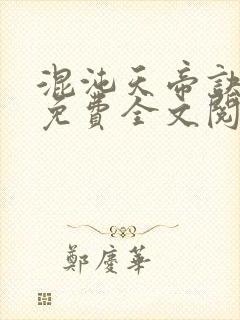 混沌天帝訣
免費全文閱
鄭慶華